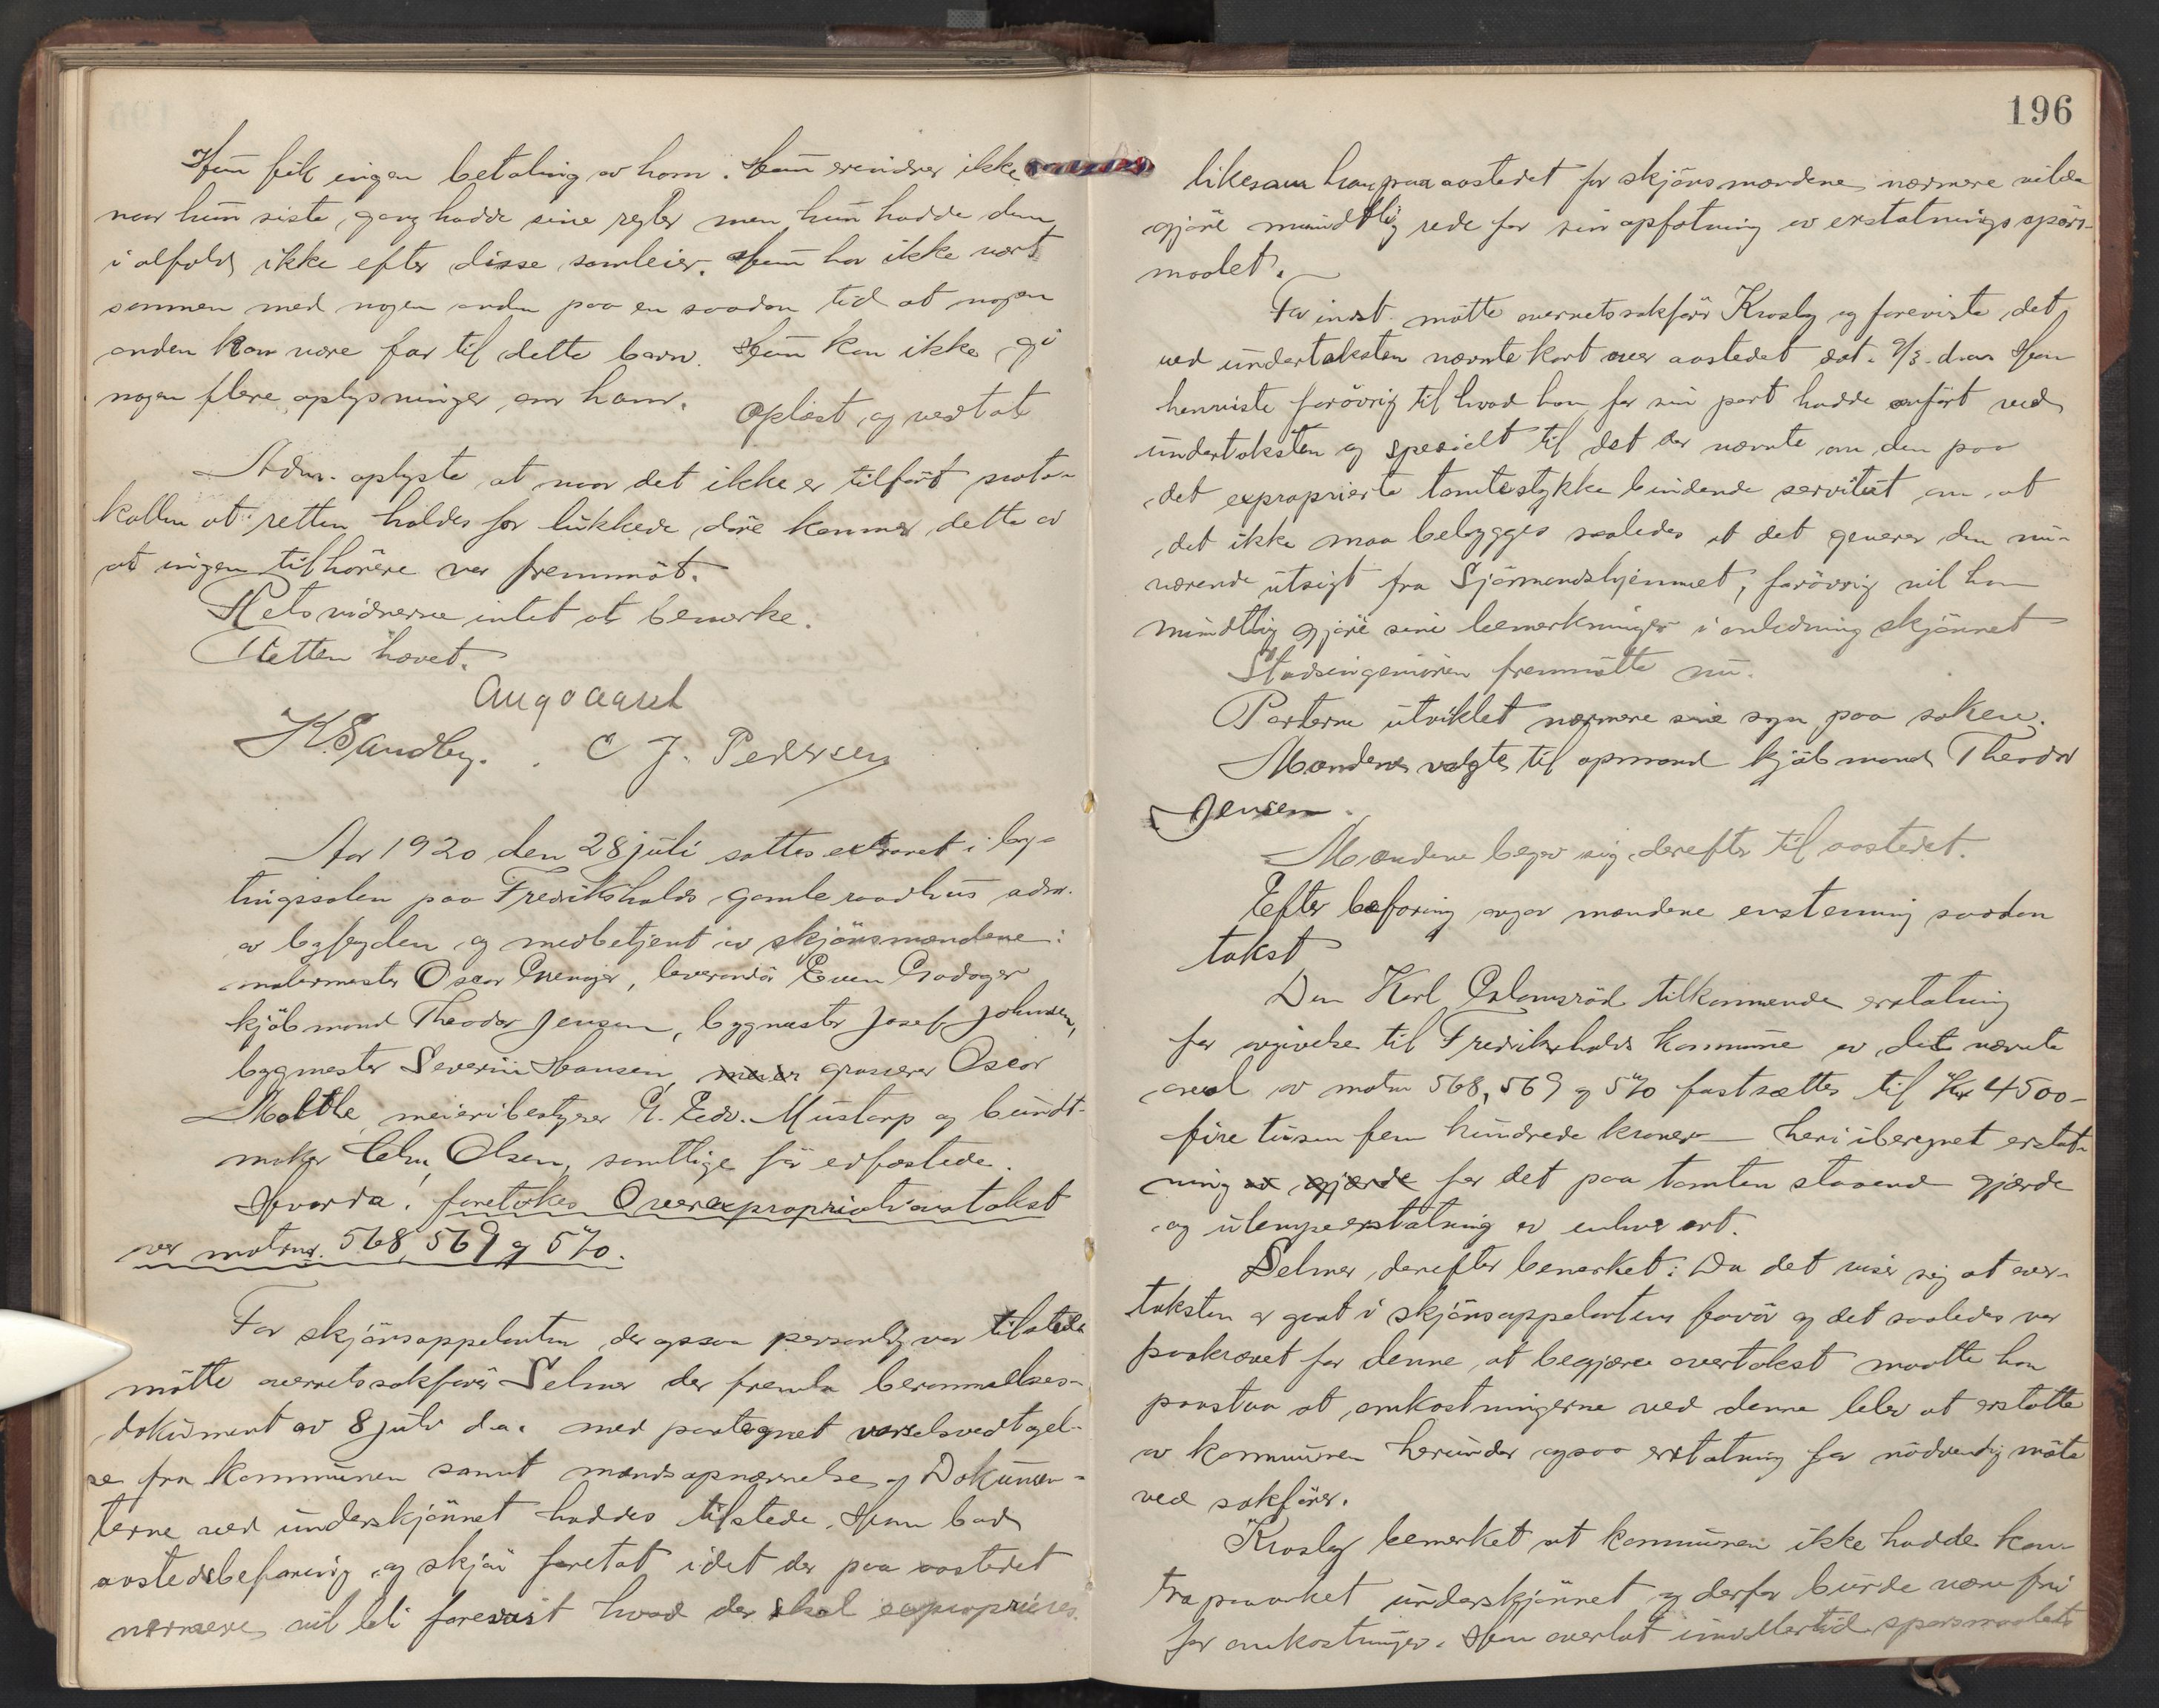 Hun fik ingen betaling av ham. Hun erindrer ikke
naar hun siste gang hadde sine regler men hun hadde dem
i alfald ikke efter disse samleier. Hun har ikke vært
sammen med nogen anden paa en saadan tid at nogen
anden kan være far til dette barn. Hun kan ikke gi
nogen flere oplysninger om ham. Oplæst og vedtat
Adm. oplyste at naar det ikke er tilført proto-
kollen at retten holdes for lukkede døre kommer dette av
at ingen tilhørere var fremmøt.
Retsvidnerne intet at bemerke.
Retten hævet.
Augaaaset
K Sandby. C J. Pedersen
Aar 1920 den 28 juli sattes extraret i by-
tingssalen paa Fredrikshalds gamle raadhus adm.
av byfogden og medbetjent av skjønsmændene:
malermester Oscar Grenager, leverandør Even Prodager
kjøbmand Theodor Jensen, bygmester Josef Johnsen,
bygmester Severin Hansen, grosserer Oscar
Molthe, meieribestyrer P. Edv. Mustorp og bundt-
maker Olsen, samtlige før edfæstede.
Hvorda: foretokes Overexpropriationstakst
over matrnr. 568, 569 og 570.
For skjønsappelanten der ogsaa personlig var tilstede
møtte overretssakfører Selmer der fremla berammelses-
dokument av 8 juli d.a. med paategnet varselsvedtagel-
se fra kommunen samt mandsopnævnelse og Dokumen-
terne ved underskjønnet haddes tilstede. Han bad
aastedsbefaring og skjøn foretat idet der paa aastedet
nærmere vil bli forevist hvad der skal exproprieres.
196
likesaa han paa aastedet for skjønsmændene nærmere vilde
gjøre mundtlig rede for sin opfatning av erstatningsspørs-
maalet.
For indst. møtte overretssakfører Krosby og foreviste det
ved undertaksten nævnte kart over aastedet dat. 9/3 d.a. Han
henviste forøvrig til hvad han for sin part hadde anført ved
undertaksten og specielt til det der nævnte om den paa
det exproprierte tomtestykke bindende servitut om at
det ikke maa bebygges saaledes at det generer den nu-
værende utsigt fra Sjømandshjemmet, forøvrig vil han
mundtlig gjøre sine bemerkninger i anledning skjønnet
Stadsingeniøren fremmøtte nu.
Parterne utviklet nærmere sine syn paa saken.
Mændene valgte til opmand kjøbmand Theodor
Jensen.
Mændene begav sig derefter til aastedet.
Efter befaring avgav mændene enstemmig saadan
takst
Den Karl tilkommende erstatning
for avgivelse til Fredrikshalds kommune av det nævnte
areal av matrn 568, 569 og 570 fastsættes til Kr 4500-
fire tusen fem hundrede kroner — heri iberegnet erstat-
ning av gjærde for det paa tomten staaende gjærde
og ulempeerstatning av enhver art.
Selmer derefter bemerket: Da det viser sig at over-
taksten er gaat i skjønsappelantens favør og det saaledes var
paakrævet for denne at begjære overtakst maatte han
paastaa at omkostningerne ved denne blev at erstatte
av kommunen herunder ogsaa erstatning for nødvendig møte
ved sakfører.
Krosby bemerket at kommunen ikke hadde kon-
trapaaanket underskjønnet og derfor burde være fri
for omkostninger. Han overlot imidlertid spørsmaalet